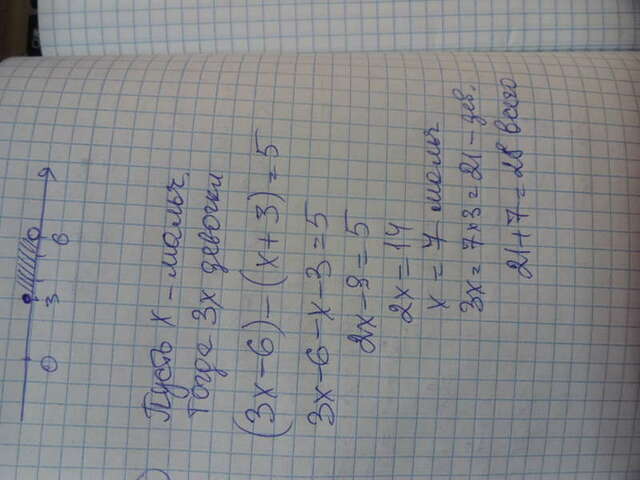 0 3 6
Пусть x – мальч.
Тогда 3x девочки
(3x-6)-(x+3)=5
3x-6-x-3=5
2x-9=5
2x=14
x=7 мальч
3x=7×3=21-дев.
21+7=28 всего